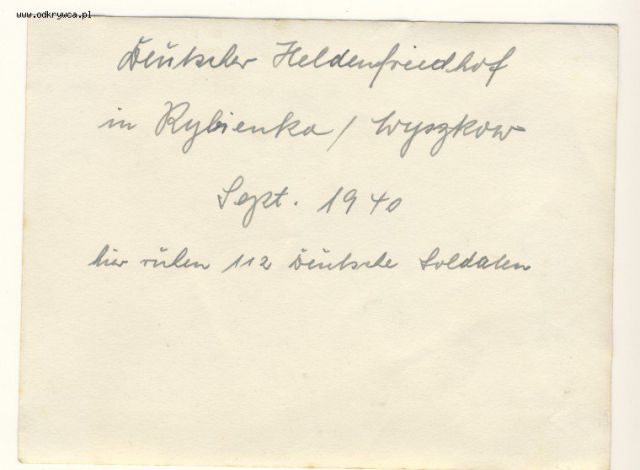 www.odkrywca.pl
Deutscher Heldenfriedhof
in Rybienka / Wyszkow
Sept. 1940
hier ruhen 112 Deutsche Soldaten